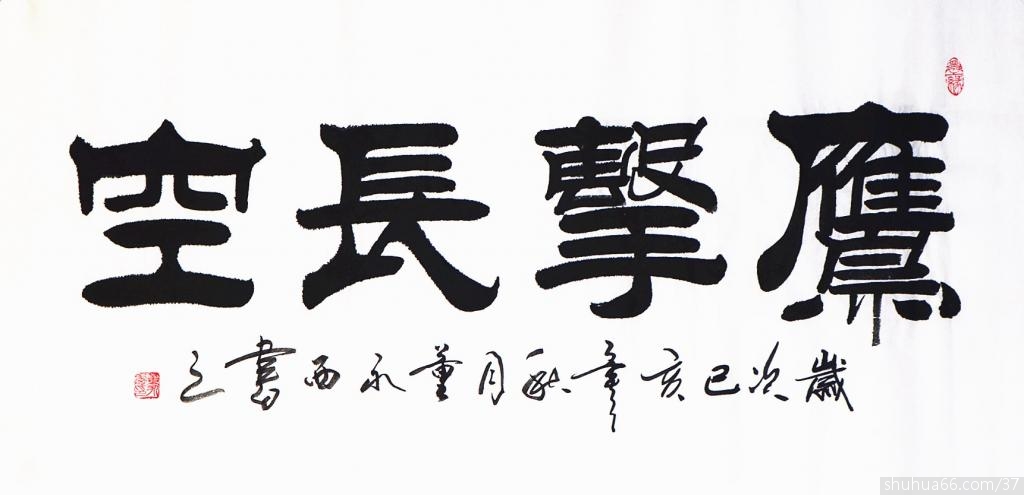 鷹擊長空
歲次己亥年秋月董永西書之
shuhua66.com/37